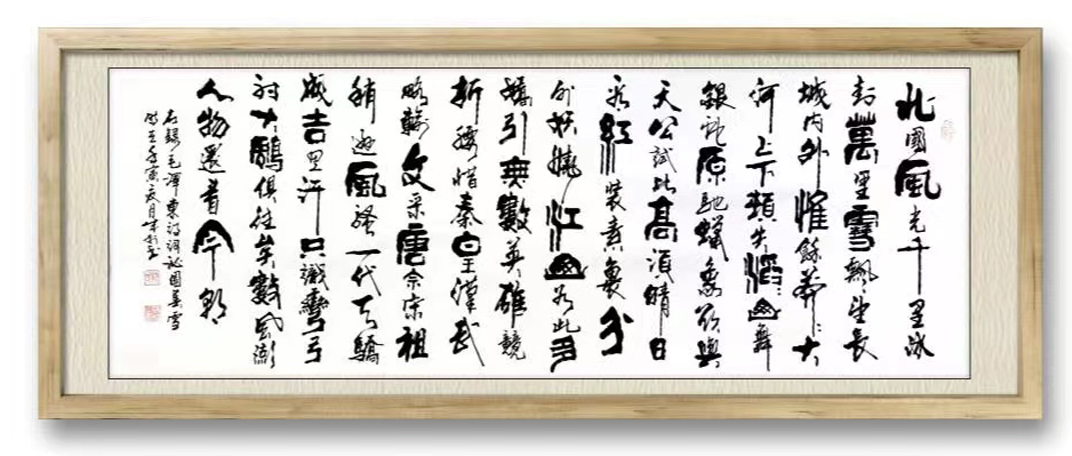 北國風光千里冰
封萬里雪飄望長
城內外惟餘莽莽大
河上下頓失滔滔山舞
銀蛇原馳蠟象欲與
天公試比高須晴日
看紅裝素裹分
外妖嬈江山如此多
嬌引無數英雄競
折腰惜秦皇漢武
略輸文采唐宗宋祖
稍遜風騷一代天驕
成吉思汗只識彎弓
射大鵰俱往矣數風流
人物還看今朝
右錄毛澤東詩詞沁園春雪